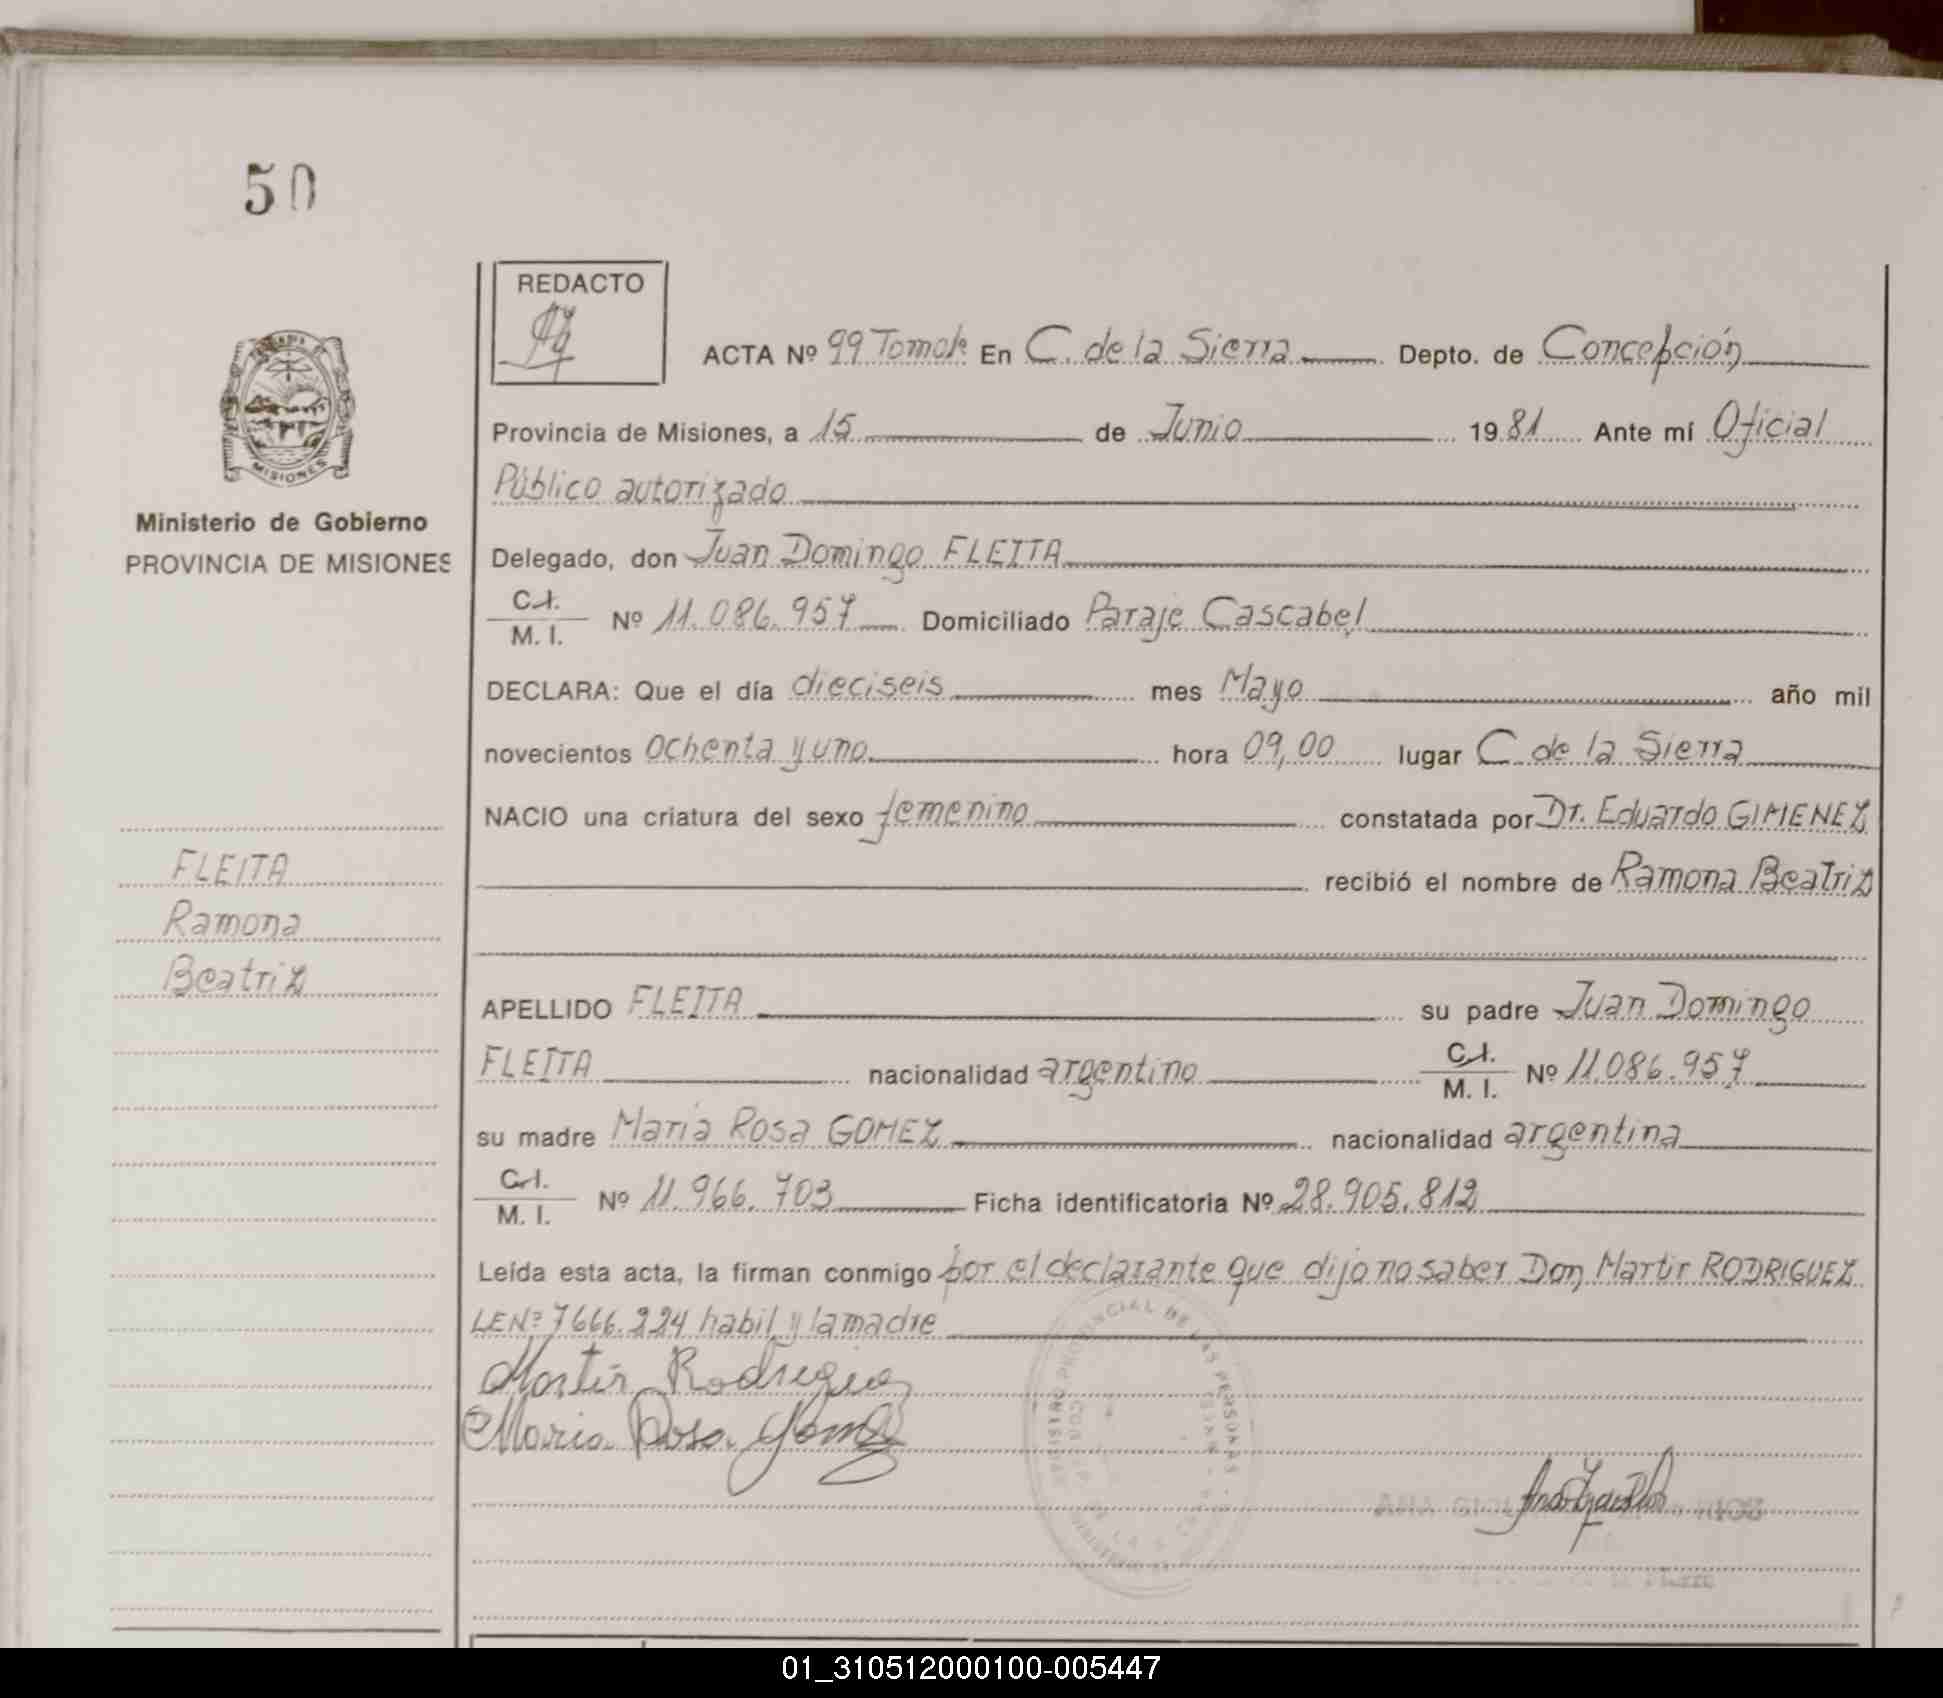 50
REDACTO
ACTA Nº 99 Tomo Iº En C. de la Sierra Depto. de Concepción
Provincia de Misiones, a 15 de Junio 1981 Ante mí Oficial
Público autorizado
MISIONES
Ministerio de Gobierno
PROVINCIA DE MISIONES
Delegado, don Juan Domingo FLEITA
C.I.
M. I. Nº 11.086.957 Domiciliado Paraje Cascabel
DECLARA: Que el día dieciseis mes Mayo año mil
novecientos ochenta y uno hora 09,00 lugar C. de la Sierra
NACIO una criatura del sexo femenino constatada por Dr. Eduardo GIMENEZ
recibió el nombre de Ramona Beatriz
FLEITA
Ramona
Beatriz
APELLIDO FLEITA su padre Juan Domingo
FLEITA nacionalidad argentino C.I.
M. I. Nº 11.086.957
su madre María Rosa GOMEZ nacionalidad argentina
C.I.
M. I. Nº 11.966.703 Ficha identificatoria Nº 28.905.812
Leída esta acta, la firman conmigo por el declarante que dijo no saber Don Martir RODRIGUEZ
LE Nº 7666.224 habil y la madre
Martir Rodriguez
Maria Rosa Gomez
01_310512000100-005447